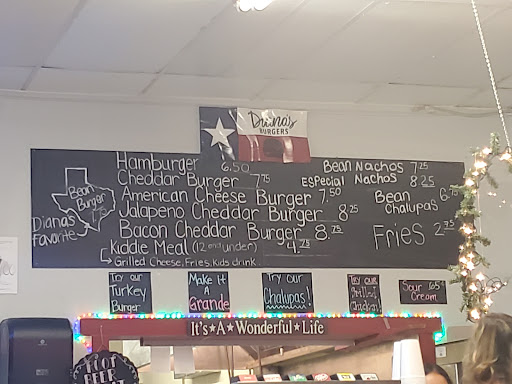 Diana's
BURGERS
Hamburger 6.50
Cheddar Burger 7.75
American Cheese Burger 7.50
Jalapeno Cheddar Burger 8.25
Bacon Cheddar Burger 8.75
Kiddie Meal (12 and under) 4.75
Grilled Cheese, Fries, Kids drink
Bean Nachos 7.25
Especial Nachos 8.25
Bean
Chalupas
Fries 2.75
Bean
Burger
Diana's
favorite
Try our
Turkey
Burger
Make it
A
Grande
Try our
Chalupas!
Try our
Grilled
Chicken!
Sour .65¢
Cream
It's★A★Wonderful★Life
ROOT
BEER